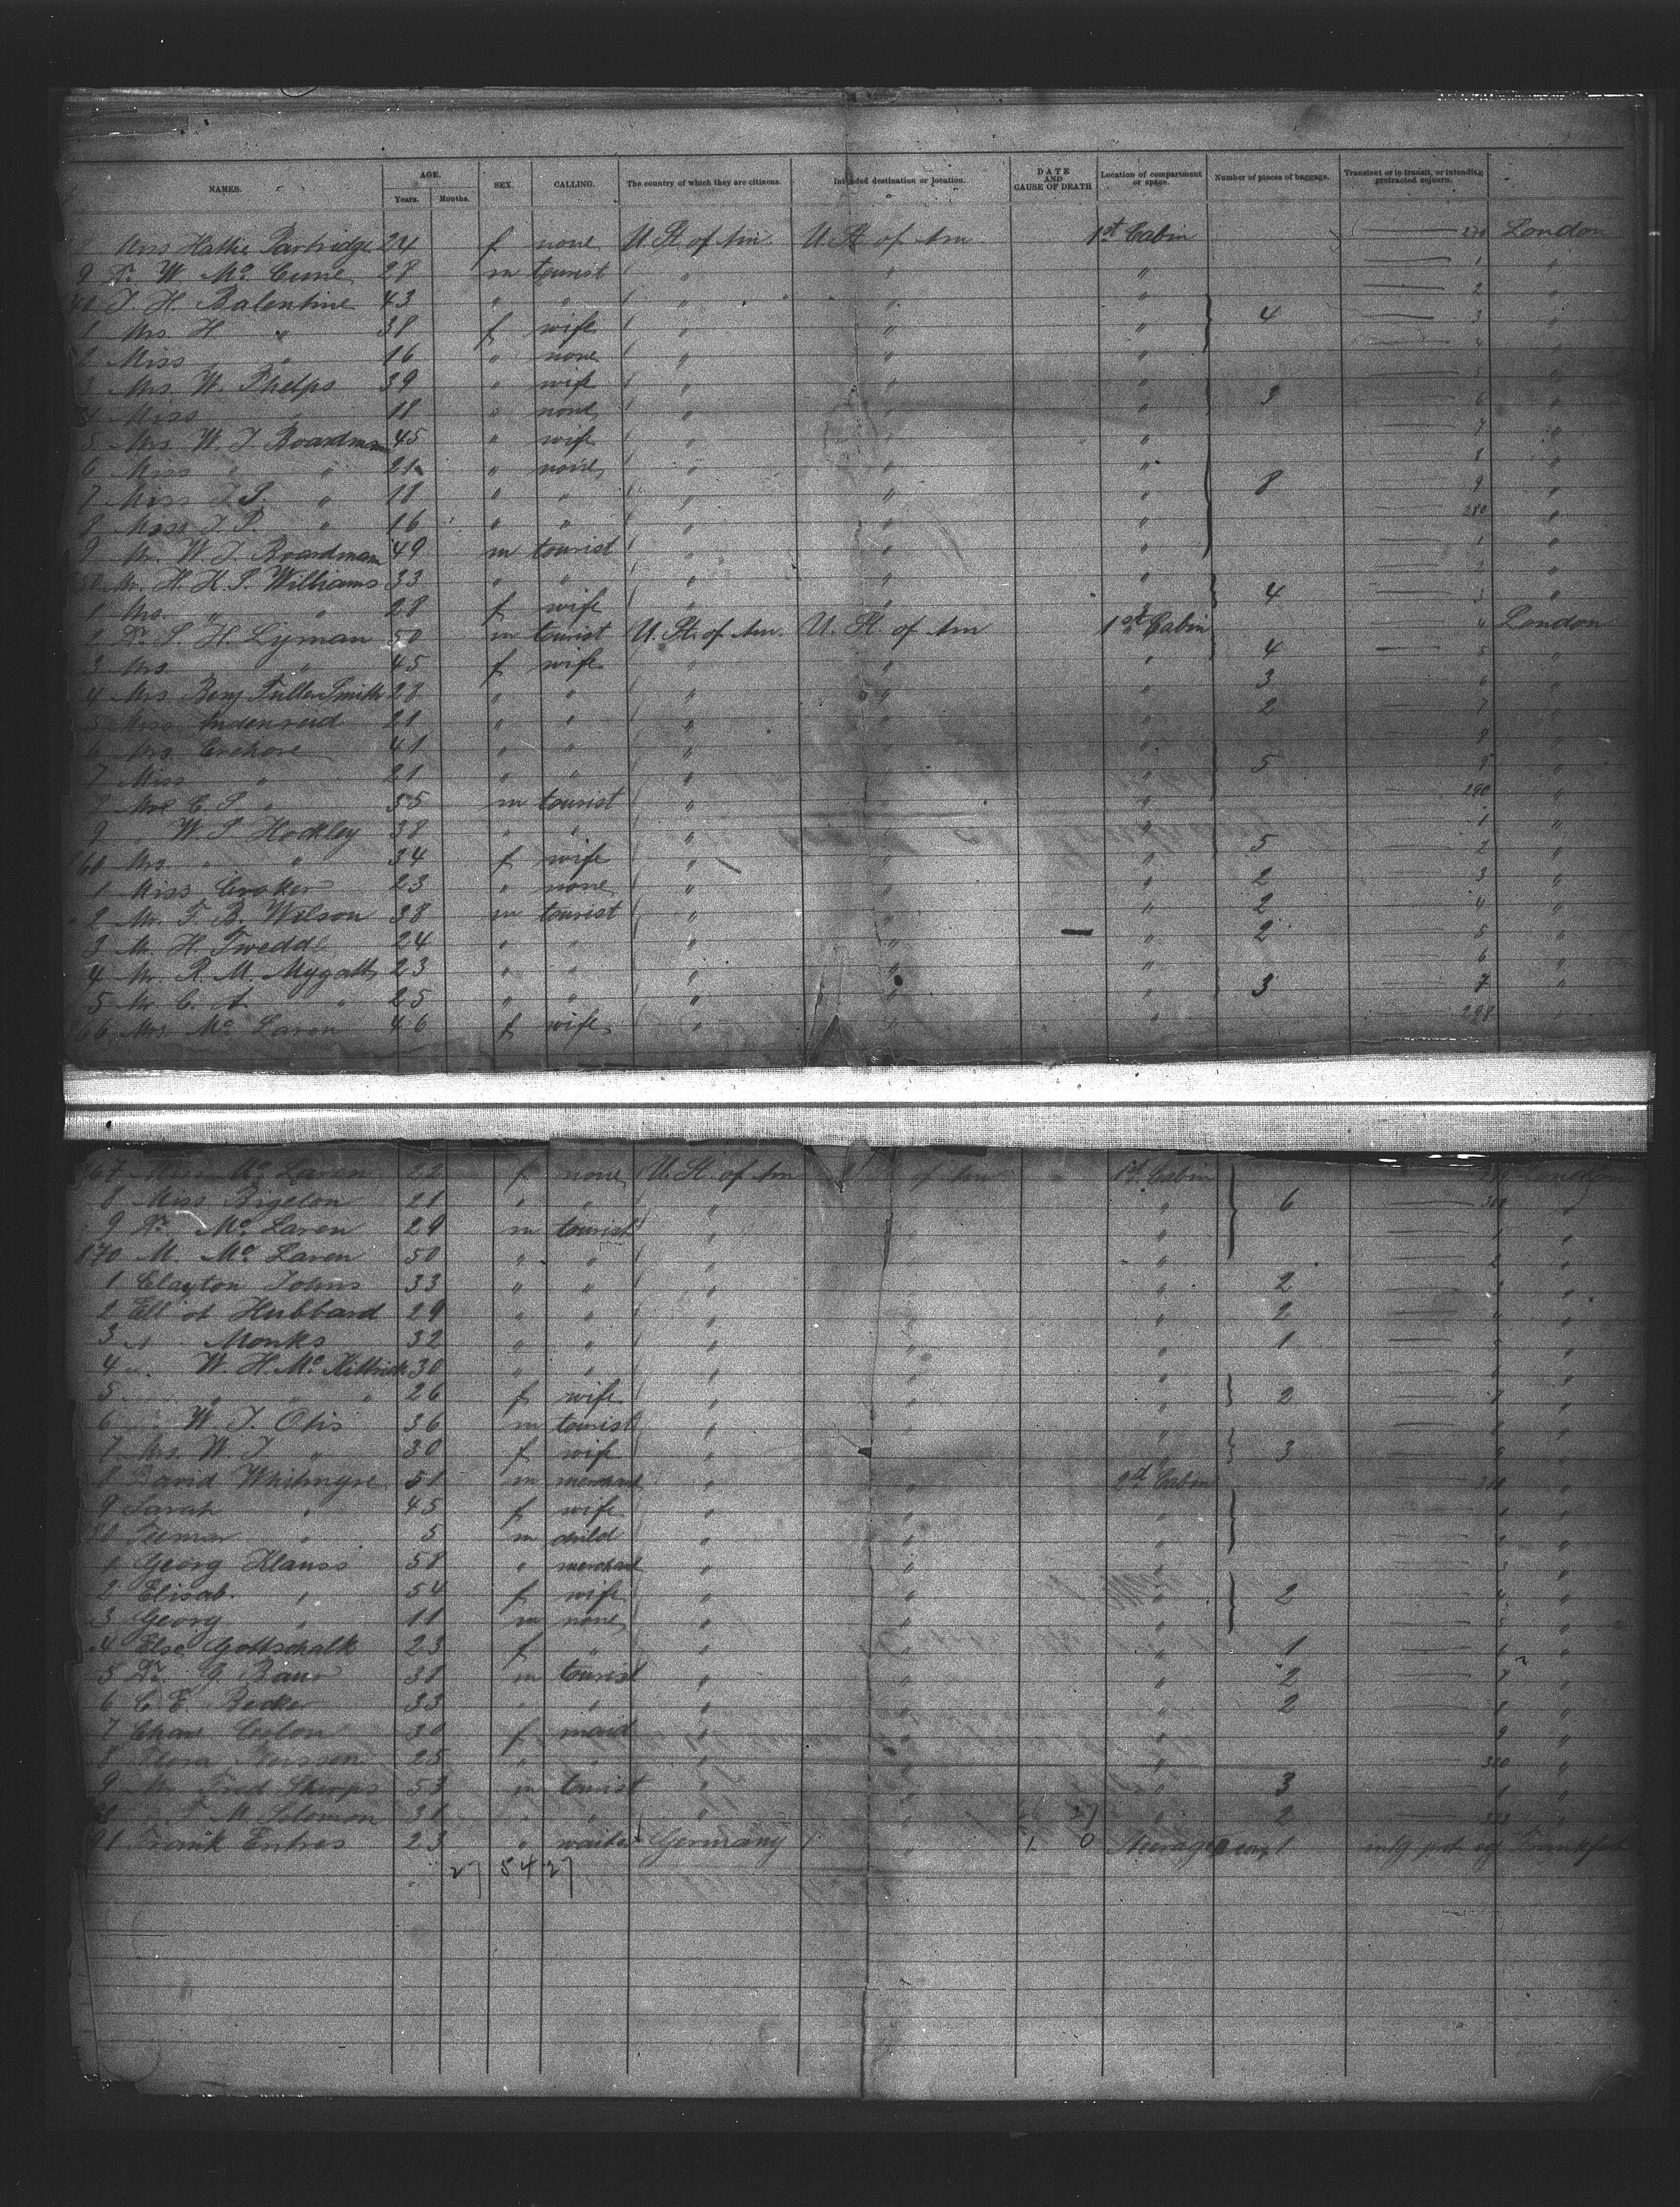 NAMES. AGE. Years. Months. SEX. CALLING. The country of which they are citizens. Intended destination or location. DATE AND CAUSE OF DEATH Location of compartment or space. Number of pieces of baggage. Transient or in transit, or intending protracted sojourn.
Miss Hattie Partridge 24 f none U. St. of Am. U. St. of Am 1st Cabin 270 London
9 Dr. W. Mc 28 m tourist " " " 1 "
40 J. H. Balentine 43 " " " " " 2 "
1 Mrs. H. " 38 f wife " " " 4 3 "
2 Miss " 16 " none " " " 4 "
3 Mrs. W. Phelps 39 " wife " " " 5 "
Miss " 18 " none " " " 3 6 "
5 Mrs. W. J. Boardman 45 " wife " " " 7 "
6 Miss " " 21 " none " " " 8 "
7 Miss J. S. " 18 " " " " " 8 9 "
8 Miss J. P. " 16 " " " " " 280 "
9 Mr. W. J. Boardman 49 m tourist " " " 1 "
50 Mr. H. H. S. Williams 33 " " " " " 2 "
1 Mrs. " " 28 f wife " " " 4 3 "
2 Dr. S. H. Lyman 50 m tourist U. St. of Am. U. St. of Am 1st Cabin 4 London
3 Mrs " 45 f wife " " " 4 5 "
4 Mrs. Benj. Fuller Smith 28 " " " " " 3 6 "
5 Miss Andenreid 21 " " " " " 2 7 "
6 Mrs. Crehore 41 " " " " " 8 "
7 Miss " 21 " " " " " 5 9 "
C. S. " 55 m tourist " " " 290 "
9 " W. S. Hockley 38 " " " " " 1 "
60 Mrs. " " 34 f wife " " " 5 2 "
1 Miss Croker 23 " none " " " 2 3 "
2 Mr. F. B. Wilson 38 m tourist " " " 2 4 "
3 Mr. H. Tweddl 24 " " " " " 2 5 "
4 Mr. R. M. Mygatt 23 " " " " " 6 "
5 Mr. C. A. " 25 " " " " " 3 7 "
66 Mrs. Mc Laren 46 f wife " " " 298 "
Miss Mc Laren 22 f none U. St. of Am of Am 1st Cabin London
8 Miss Bigelon 21 " " " " " 6 300 "
9 Dr. Mc Laren 29 m tourist " " " 1 "
870 M. Mc Laren 50 " " " " " 2 "
1 Clayton Johns 33 " " " " " 2 3 "
2 Elliot Hubbard 29 " " " " " 2 4 "
3 Monks 32 " " " " " 1 5 "
4 W. H. Mc Kittrick 30 " " " " " 6 "
5 " " " 26 f wife " " " 2 7 "
6 W. J. Otis 36 m tourist " " " 8 "
7 Mrs. W. J. " 30 f wife " " " 3 9 "
8 David Whitmyre 51 m merchant " " 2d Cabin 310 "
9 Sarah " 45 f wife " " " 1 "
" 5 m child " " " "
1 Georg Klauss 58 " merchant " " " 3 "
2 Elisab. " 54 f wife " " " 2 4 "
3 Georg " 11 m none " " " 5 "
4 Else Gottschalk 23 f " " " " 1 6 "
5 Dr. G. Baur 38 m tourist " " " 2 7 "
6 C. E. Becker 33 " " " " " 2 8 "
7 30 f maid " " " 9 "
8 Flora 25 " " " " " 320 "
9 Mr. Fred 53 m tourist " " " 3 1 "
M. Solomon 31 " " " " " 2 322 "
91 Frank Entres 23 " waiter Germany " 1 0 Steerage 1 Frankfurt
27 54 27